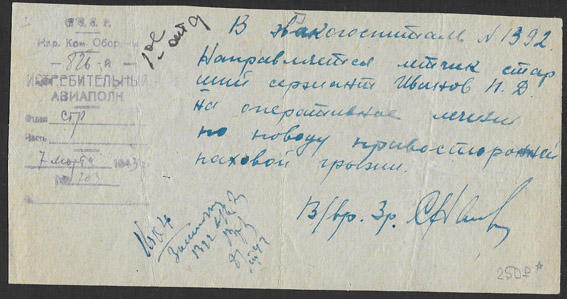 С.С.С.Р.
Нар. Ком. Обороны
826-й
ИСТРЕБИТЕЛЬНЫЙ
АВИАПОЛК
Отдел стр
Часть
7 марта 1943 г.
№ 203
В Эвакогоспиталь N 1392.
Направляется летчик стар
ший сержант Иванов Н. Д
на оперативное лечение
по поводу правосторонней
паховой грыжи.
В/вр. 3р.
1392
250₽